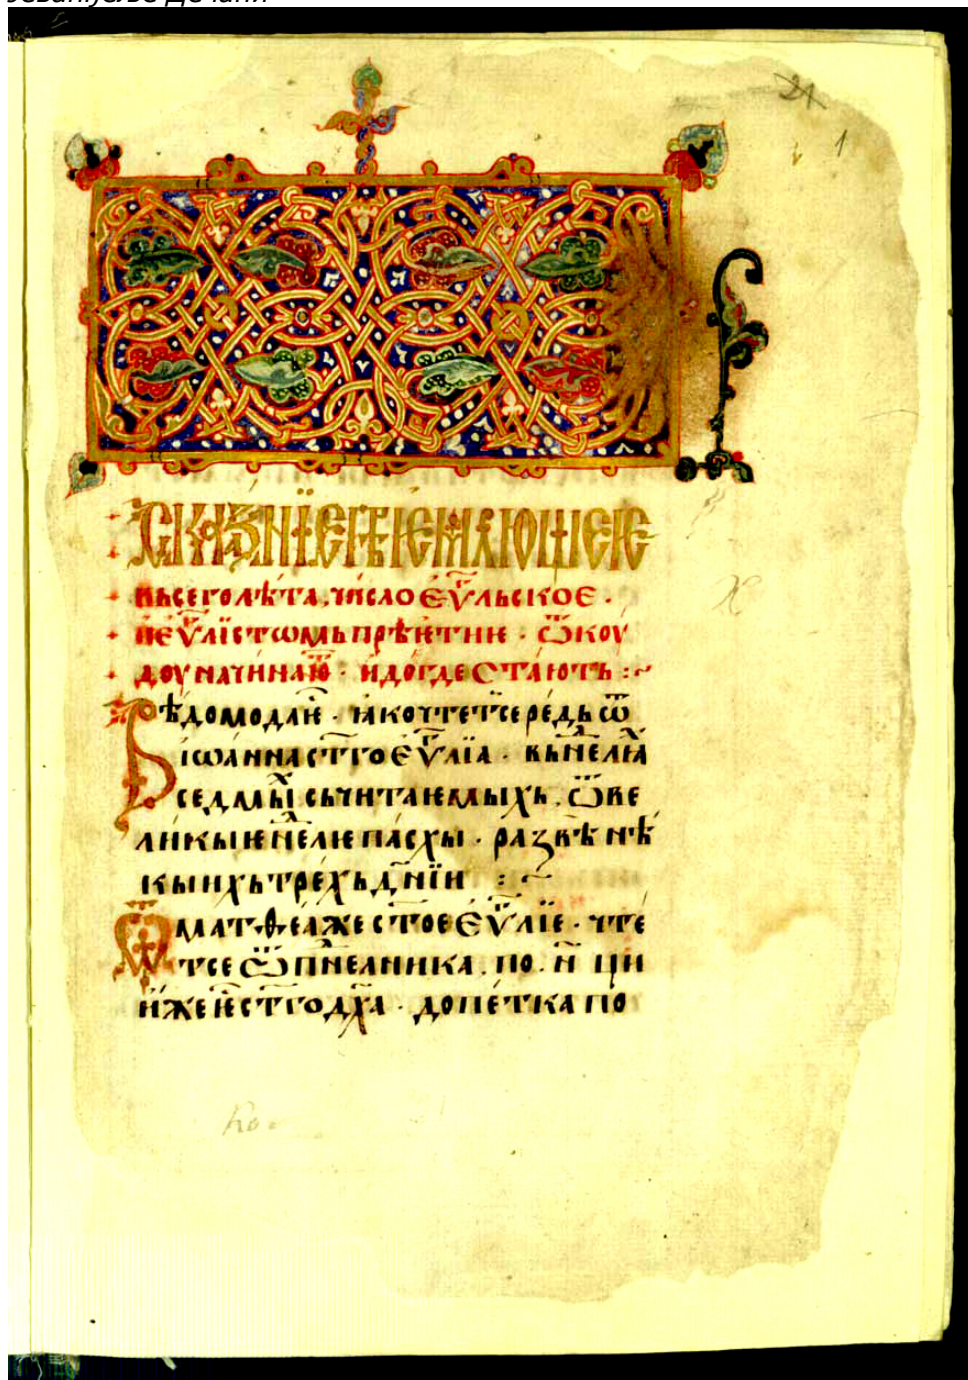 21
1
Сказ҃нїе прїемлющеѥ
въсего лѣта. число є҆ѵ҃льское ·
и҆ є҆ѵ҃лїстѡмь прѣѥтиѥ · ѿкоу
доу начинаю҃ · и҆ догде стають :~
Вѣдомо да ѥ҃ · ꙗко чтет се редь ѿ
іѡанна ст҃го є҆ѵ҃лїа · въ не҃лꙗ
седмы съчитаѥмыхь. ѿ ве
ликыѥ не҃лѥ пасхы · развѣ нѣ
кыихь трехь д҃нїи :~
Ѿ маѳеа же ст҃ое є҆ѵ҃лїе · чте
тсе ѿ п҃неалника. по. н҃ ци
иже ѥ҃ ст҃го дх҃а · до петка по